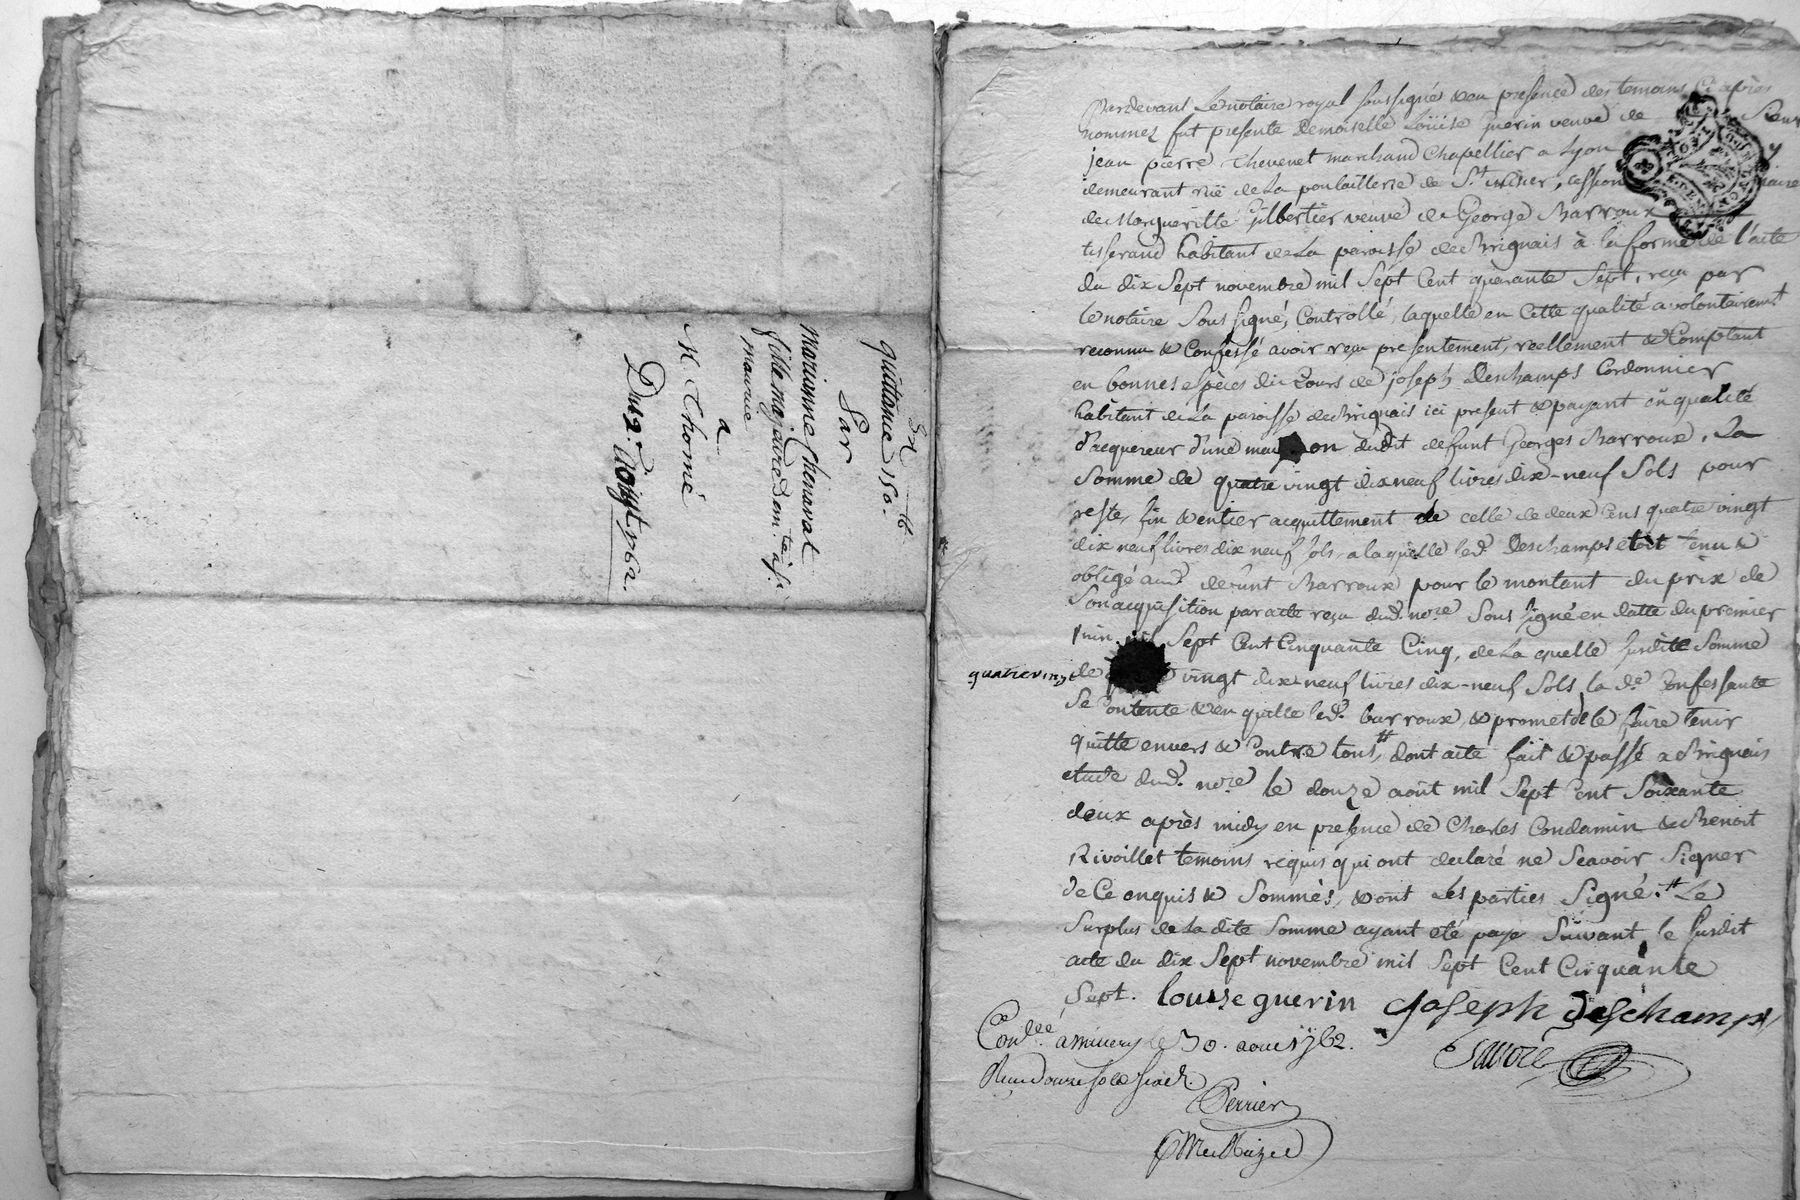 quittance 150.
Par
Marianne Chenavat
fille majeure dom.
M. Thomé
Du 12. Aoust 1762.
Pardevant Le notaire royal soussigné & en presence des temoins Ci après
nommez fut presente Demoiselle Loüise guerin veuve de Sieur
jean pierre Thevenet marchand Chapellier a Lyon y
demeurant rüe de La poulaillerie de St. nizier, cession naire
de Margueritte Gilbertier veuve de George Barroux
tisserand habitant de La paroisse de Brignais à la forme de l'acte
du dix Sept novembre mil Sept Cent quarante Sept, reçu par
le notaire Sous signé, Controllé, laquelle en Cette qualité a volontairemt
reconnu & Confessé avoir reçu presentement, reellement & Comptant
en bonnes espèces du Cours de joseph Deschamps Cordonnier
habitant de La paroisse de Brignais ici present & payant en qualité
d'acquereur d'une maison dudit defunt Georges Barroux, La
Somme de quatre vingt dix neuf livres dix-neuf Sols pour
reste, fin & entier acquittement de celle de deux Cens quatre vingt
dix neuf livres dix neuf sols, a la quelle led. Deschamps etoit tenu &
obligé aud. defunt Barroux pour le montant du prix de
Son acquisition par acte reçu dud. nore Sous signé en datte du premier
juin mil Sept Cent Cinquante Cinq, de La quelle susdite Somme
quatrevingt
de vingt dix-neuf livres dix-neuf Sols, la de. Confessante
Se Contente & en quitte led. barroux, & promet de le faire tenir
quitte envers & Contre tous,# dont acte fait & passé a Brignais
etude dud. nore le douze août mil Sept Cent Soixante
deux après midy en presence de Charles Condamin & Benoit
Rivoillet temoins requis qui ont declaré ne Scavoir Signer
de Ce enquis & Sommés, & ont Les parties Signé.# Le
Surplus de La dite Somme ayant eté payé Suivant le susdit
acte du dix Sept novembre mil Sept Cent Cinquante
Sept. Louise guerin Joseph Deschamps
Conllé. a Millery le 30. aoust 1762.
Reçu douze sols
Perrier